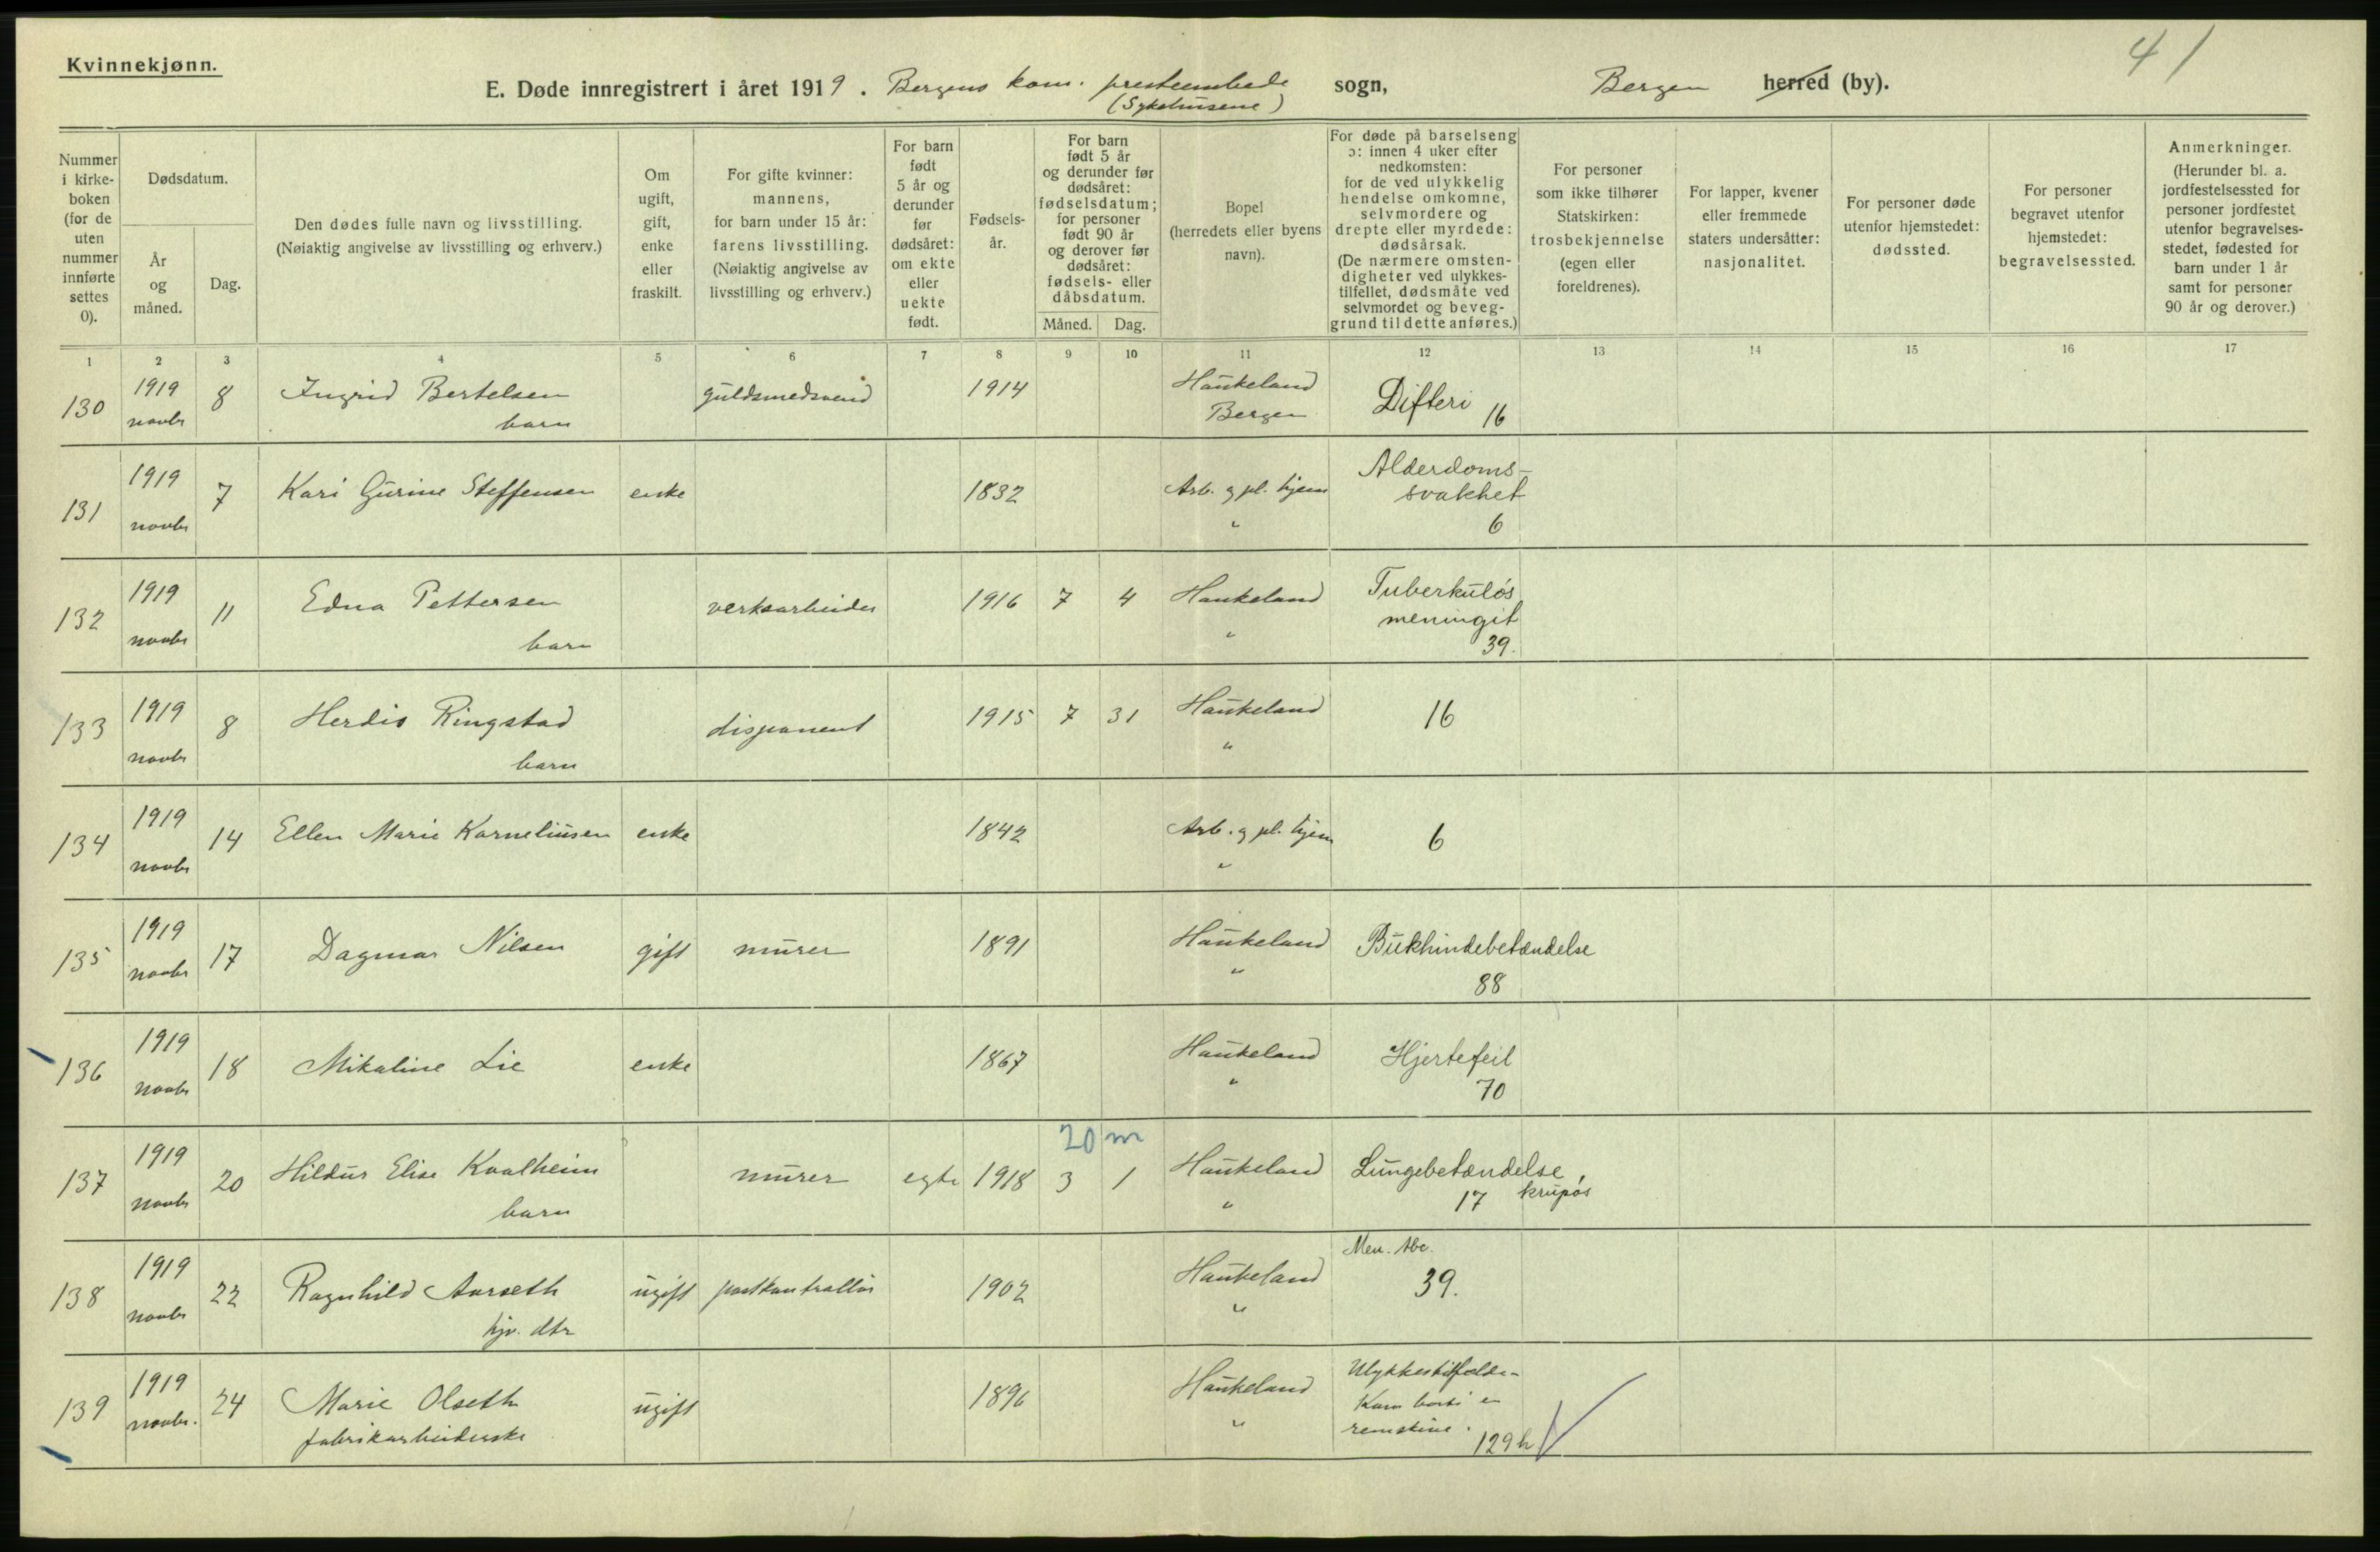 Kvinnekjønn.
41
E. Døde innregistrert i året 1919. Bergens kom. presteembede sogn, Bergen herred (by).
(Sykehusene)
Nummer i kirke-boken (for de uten nummer innførte settes 0).
Dødsdatum.
År og måned.
Dag.
Den dødes fulle navn og livsstilling.
(Nøiaktig angivelse av livsstilling og erhverv.)
Om ugift, gift, enke eller fraskilt.
For gifte kvinner: mannens, for barn under 15 år: farens livsstilling. (Nøiaktig angivelse av livsstilling og erhverv.)
For barn født 5 år og derunder før dødsåret: om ekte eller uekte født.
Fødsels-år.
For barn født 5 år og derunder før dødsåret: fødselsdatum; for personer født 90 år og derover før dødsåret: fødsels- eller dåbsdatum.
Måned. Dag.
Bopel (herredets eller byens navn).
For døde på barselseng ɔ: innen 4 uker efter nedkomsten: for de ved ulykkelig hendelse omkomne, selvmordere og drepte eller myrdede: dødsårsak. (De nærmere omsten-digheter ved ulykkes-tilfellet, dødsmåte ved selvmordet og beveg-grund til dette anføres.)
For personer som ikke tilhører Statskirken: trosbekjennelse (egen eller foreldrenes).
For lapper, kvener eller fremmede staters undersåtter: nasjonalitet.
For personer døde utenfor hjemstedet: dødssted.
For personer begravet utenfor hjemstedet: begravelsessted.
Anmerkninger. (Herunder bl. a. jordfestelsessted for personer jordfestet utenfor begravelses-stedet, fødested for barn under 1 år samt for personer 90 år og derover.)
1 2 3 4 5 6 7 8 9 10 11 12 13 14 15 16 17
130 1919 novbr 8 Ingrid Bertelsen barn guldsmedsvend 1914 Haukeland Bergen Difteri 16
131 1919 novbr 7 Kari Gurine Steffensen enke 1832 Arb. og pl. hjem " Alderdoms-svakhet 6
132 1919 novbr 11 Edna Pettersen barn verksarbeider 1916 7 4 Haukeland " Tuberkuløs meningit 39.
133 1919 novbr 8 Herdis Ringstad barn disponent 1915 7 31 Haukeland " 16
134 1919 novbr 14 Ellen Marie Korneliusen enke 1842 Arb. og pl. hjem " 6
135 1919 novbr 17 Dagmar Nilsen gift murer 1891 Haukeland " Bukhindebetændelse 88
136 1919 novbr 18 Mikaline Lie enke 1867 Haukeland " Hjertefeil 70
20 m
137 1919 novbr 20 Hildur Elise Kvalheim barn murer egte 1918 3 1 Haukeland " Lungebetændelse, krupøs 17
138 1919 novbr 22 Ragnhild Aarseth hjv. dtr ugift postkontrollør 1902 Haukeland " Men. tbc. 39.
139 1919 novbr. 24 Marie Olseth fabrikarbeiderske ugift 1896 Haukeland " Ulykkestilfælde- Kom borti en remskive. 129 h